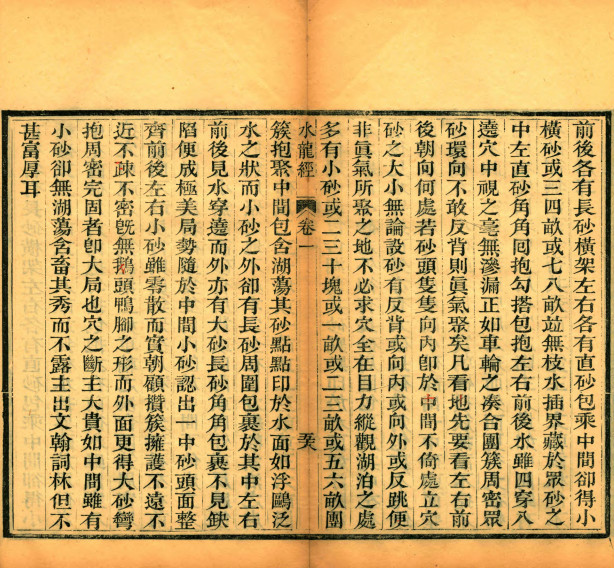 前後各有長砂橫架左右各有直砂包乘中間卻得小
橫砂或三四畝或七八畝竝無枝水插界藏於眾砂之
中左直砂角角囘抱勾搭包抱左右前後水雖四穿八
遶穴中視之毫無滲漏正如車輪之凑合團簇周密眾
砂環向不敢反背則眞氣聚矣凡看地先要看左右前
後朝向何處若砂頭隻隻向內卽於中間不倚處立穴
砂之大小無論設砂有反背或向內或向外或反跳便
非眞氣所聚之地不必求穴全在目力縱觀湖泊之處
多有小砂或二三十塊或一畝或二三畝或五六畝團
水龍經 卷一
簇抱聚中間包含湖蕩其砂點點印於水面如浮鷗泛
水之狀而小砂之外卻有長砂周圍包裹於其中左右
前後見水穿遶而外亦有大砂長砂角角包裹不見缺
陷便成極美局勢隨於中間小砂認出一中砂頭面整
齊前後左右小砂雖零散而實朝顧攢簇擁護不遠不
近不疎不密旣無鵝頭鴨腳之形而外面更得大砂彎
抱周密完固者卽大局也穴之斷主大貴如中間雖有
小砂卻無湖蕩含畜其秀而不露主出文翰詞林但不
甚富厚耳